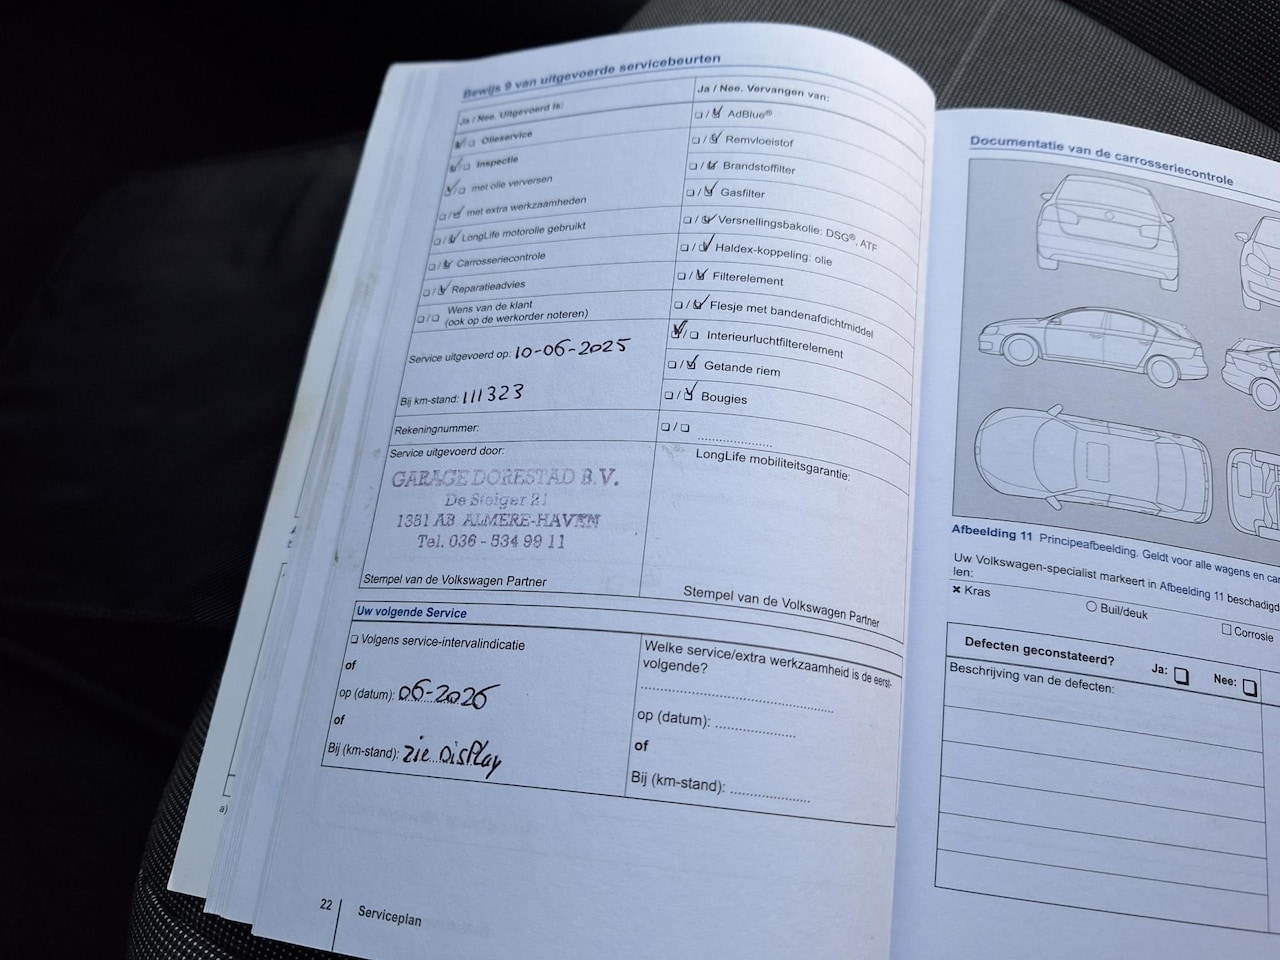 Bewijs 9 van uitgevoerde servicebeurten
Ja / Nee. Uitgevoerd is:
Olieservice
Inspectie
met olie verversen
met extra werkzaamheden
LongLife motorolie gebruikt
Carrosseriecontrole
Reparatieadvies
Wens van de klant
(ook op de werkorder noteren)
Service uitgevoerd op: 10-06-2025
Bij km-stand: 111323
Rekeningnummer:
Service uitgevoerd door:
GARAGE DORESTAD B.V.
De Steiger 21
1351 AB ALMERE-HAVEN
Tel. 036 - 534 99 11
Stempel van de Volkswagen Partner
Ja / Nee. Vervangen van:
AdBlue®
Remvloeistof
Brandstoffilter
Gasfilter
Versnellingsbakolie: DSG®, ATF
Haldex-koppeling: olie
Filterelement
Flesje met bandenafdichtmiddel
Interieurluchtfilterelement
Getande riem
Bougies
LongLife mobiliteitsgarantie:
Stempel van de Volkswagen Partner
Uw volgende Service
Volgens service-intervalindicatie
of
op (datum): 06-2026
of
Bij (km-stand): zie Display
Welke service/extra werkzaamheid is de eerst-
volgende?
op (datum):
of
Bij (km-stand):
22
Serviceplan
a)
Documentatie van de carrosseriecontrole
Afbeelding 11 Principeafbeelding. Geldt voor alle wagens en
Uw Volkswagen-specialist markeert in Afbeelding 11
len:
Kras
Buil/deuk
Corrosie
Defecten geconstateerd?
Ja:
Nee:
Beschrijving van de defecten: